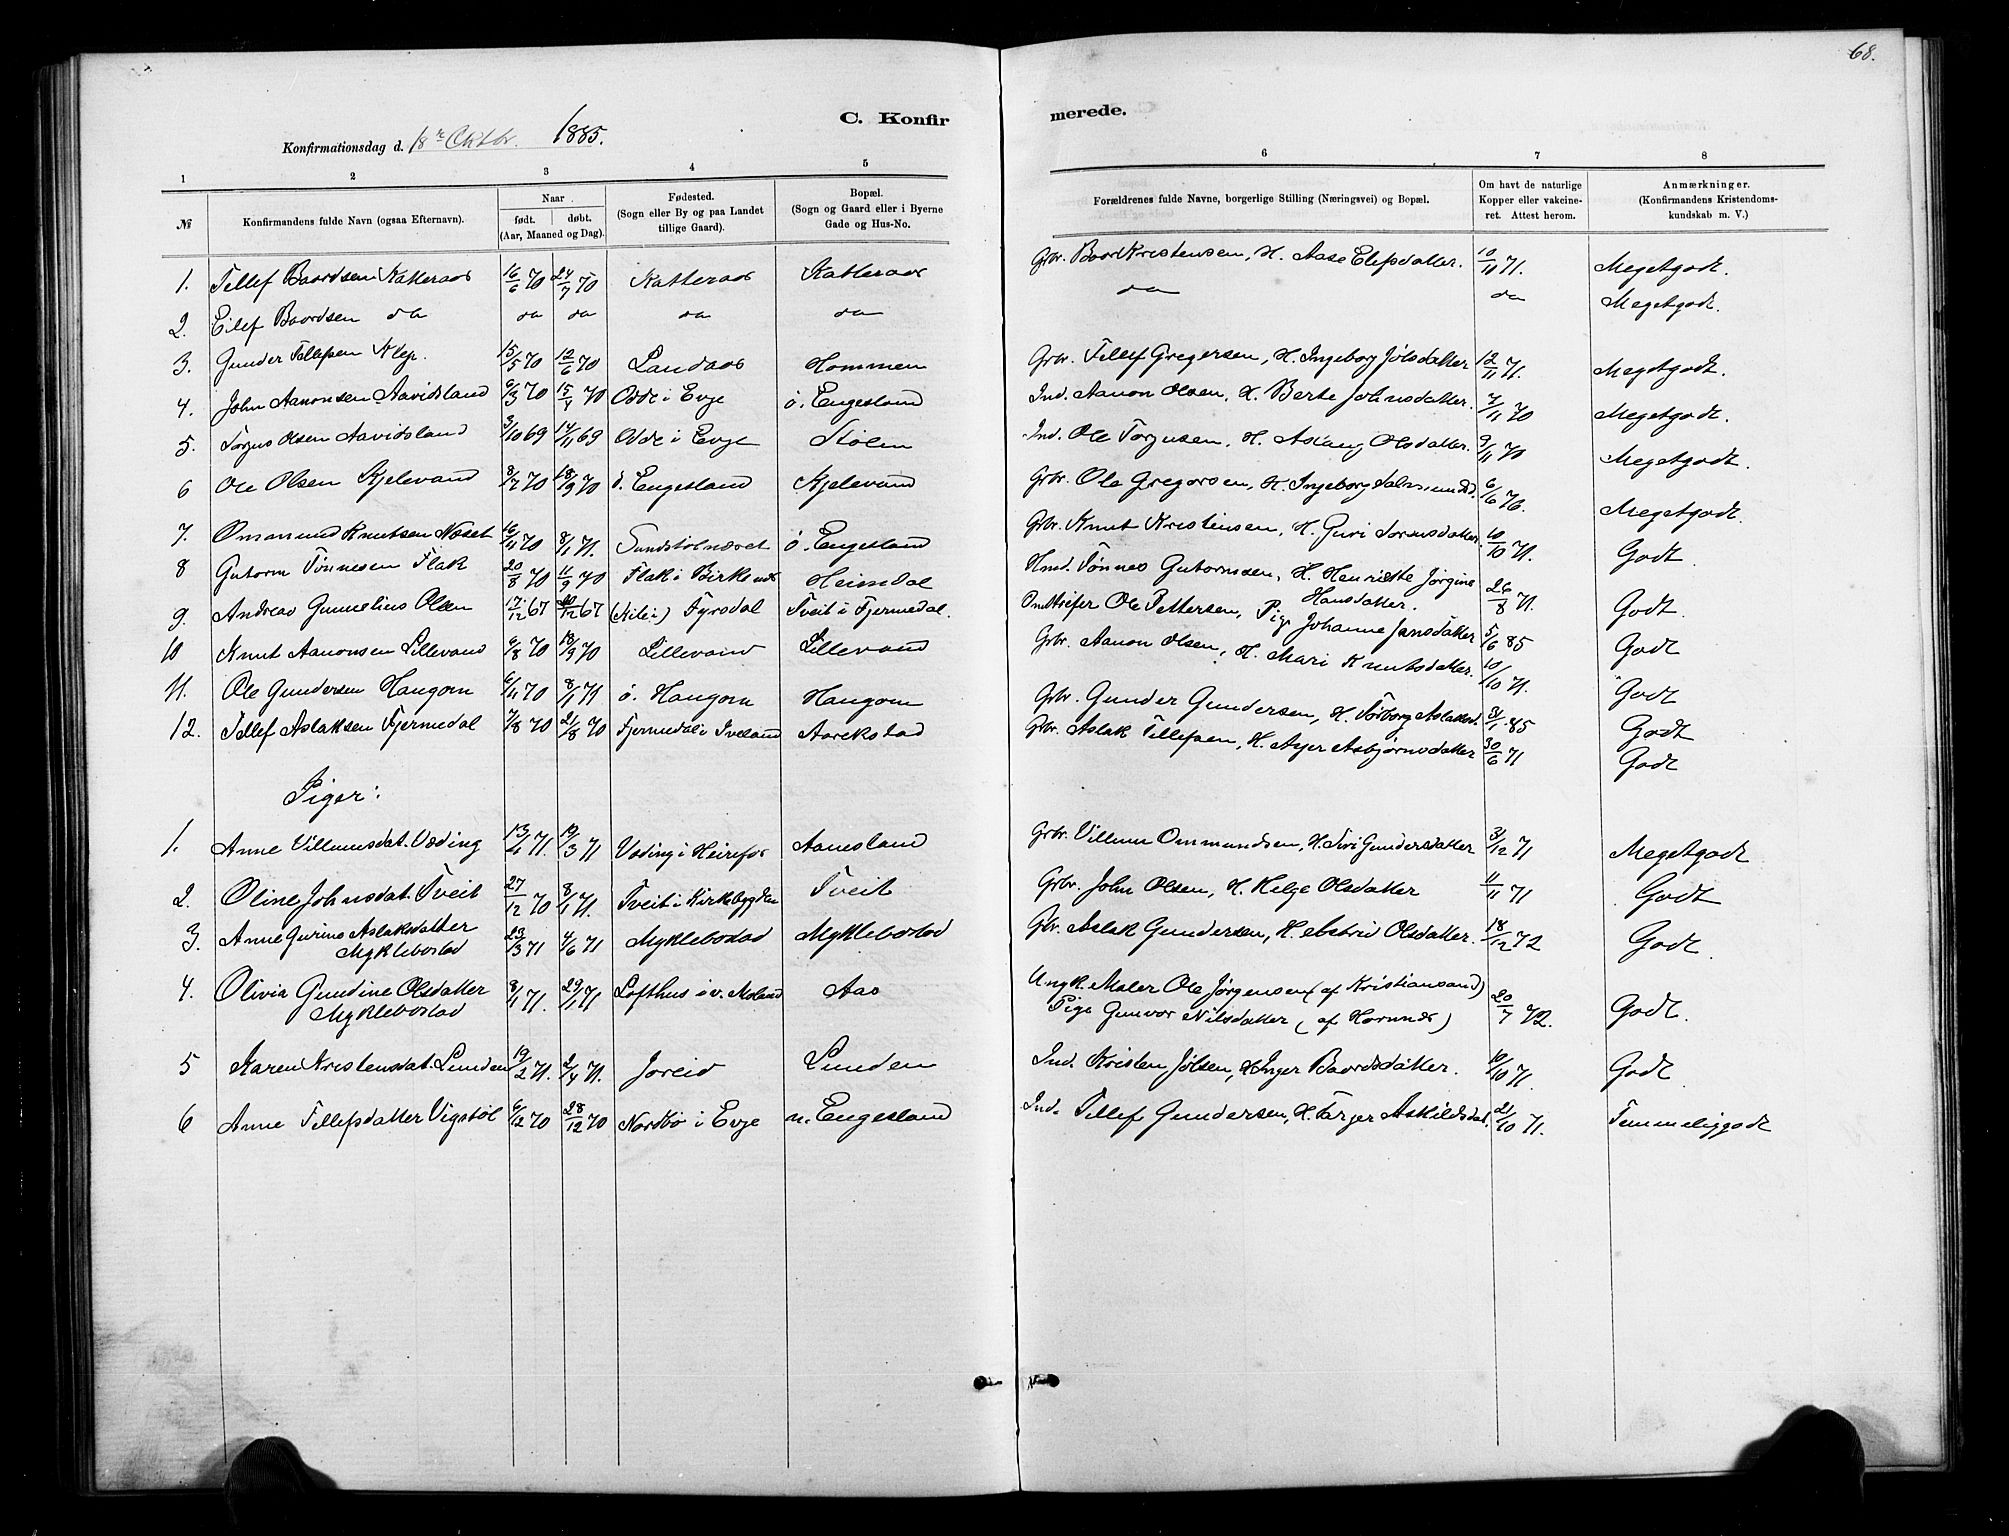 68.
C. Konfirmerede.
Konfirmationsdag d. 18 Oktbr. 1885.
1 2 3 4 5 6 7 8
№ Konfirmandens fulde Navn (ogsaa Efternavn). Naar født. døbt. (Aar, Maaned og Dag). Fødested. (Sogn eller By og paa Landet tillige Gaard). Bopæl. (Sogn og Gaard eller i Byerne Gade og Hus-No. Forældrenes fulde Navne, borgerlige Stilling (Næringsvei) og Bopæl. Om havt de naturlige Kopper eller vakcineret. Attest herom. Anmærkninger. (Konfirmandens Kristendomskundskab m. V.)
1. Tellef Baardsen Katteraas 16/6 70 24/7 70 Katteraas Katteraas Grbr. Baard Kristensen, H. Aase Elefsdatter. 10/11 71. Megetgodt.
2. Eilef Baardsen do do do do do do do Megetgodt.
3. Gunder Tellefsen Klep. 15/5 70 12/6 70 Landaas Hommen Grbr. Tellef Gregersen, H. Ingeborg Jølsdatter 12/11 71. Megetgodt.
4. John Aanonsen Aavidsland 6/3 70 15/4 70 Odde i Evje ö. Engesland Ind. Aanon Olsen, H. Berte Johnsdatter. 7/11 70 Megetgodt.
5. Torjus Olsen Aavidsland 3/10 69 14/11 69 Odde i Evje Stölen Ind. Ole Torjusen, H. Aslaug Olsdatter. 9/11 70 Megetgodt.
6 Ole Olsen Kjelevand 8/7 70 18/9 70 ö. Engesland Kjelevand Grbr. Ole Gregersen, H. Ingeborg Salmundsd. 6/6 76. Megetgodt.
7. Ommund Knutsen Næset 16/11 70 8/1 71. Sundstölnæset ö. Engesland Grbr. Knut Kristensen, H. Guri Torjusdatter. 10/10 71. Godt
8 Gutorm Tönnesen Flak 20/8 70 11/9 70 Flak i Birkenes Heimdal Hmd. Tönnes Gutormsen, H. Henriette Jörgine Hansdatter. 26/8 71. Godt.
9. Andreas Gunnelius Olsen 17/12 67 30/12 67 (Nile i) Fyrsdal Tveit i Fjermedal. Omstreifer Ole Pettersen, Pige Johanne Jansdatter 5/6 85 Godt
10 Knut Aanonsen Lillevand 6/8 70 18/9 70 Lillevand Lillevand Grbr. Aanon Olsen, H. Mari Knutsdatter. 10/10 71. Godt
11. Ole Gundersen Haugom 6/11 70 8/1 71 ö. Haugom Haugom Grbr. Gunder Gundersen, H. Torborg Aslaksd. 31/1 85 Godt
12. Tellef Aslaksen Fjermedal 7/8 70 21/8 70 Fjermedal i Iveland Aareksdad Grbr. Aslak Tellefsen, H. Asjer Asbjörnsdatter 30/6 71 Godt
Piger:
1. Anne Villumsdat. Væding 13/1 71. 19/3 71 Væding i Heirefos Aanesland Grbr. Villum Ommundsen, H. Siri Gundersdatter 31/12 71 Megetgodt
2. Oline Johnsdat. Tveit 27/12 70 8/1 71. Tveit i Kirkebygden Tveit Grbr. John Olsen, H. Helge Olsdatter 11/11 71 Godt
3. Anne Gurine Aslaksdatter Myklebostad 23/3 71 4/6 71 Myklebostad Myklebostad Gbr. Aslak Gundersen, H. Astrid Olsdatter. 18/12 72 Godt.
4. Olivia Gundine Olsdatter Myklebostad 8/1 71. 29/1 71 Lofthus i v. Moland Aas Ungk. Maler Ole Jørgensen (af Kristiansand) Pige Gunvor Nilsdatter (af Hornnes) 20/7 72. Godt.
5 Karen Kristensdat. Lunden 19/2 71. 2/4 71. Joreid Lunden Ind. Kristen Jölsen, H. Inger Baardsdatter. 10/10 71. Godt.
6 Anne Tellefsdatter Vigstöl 6/12 70 28/12 70 Nordbö i Evje n. Engesland Ind. Tellef Gundersen, H. Tarjer Askildsdat. 21/10 71. Temmeliggodt